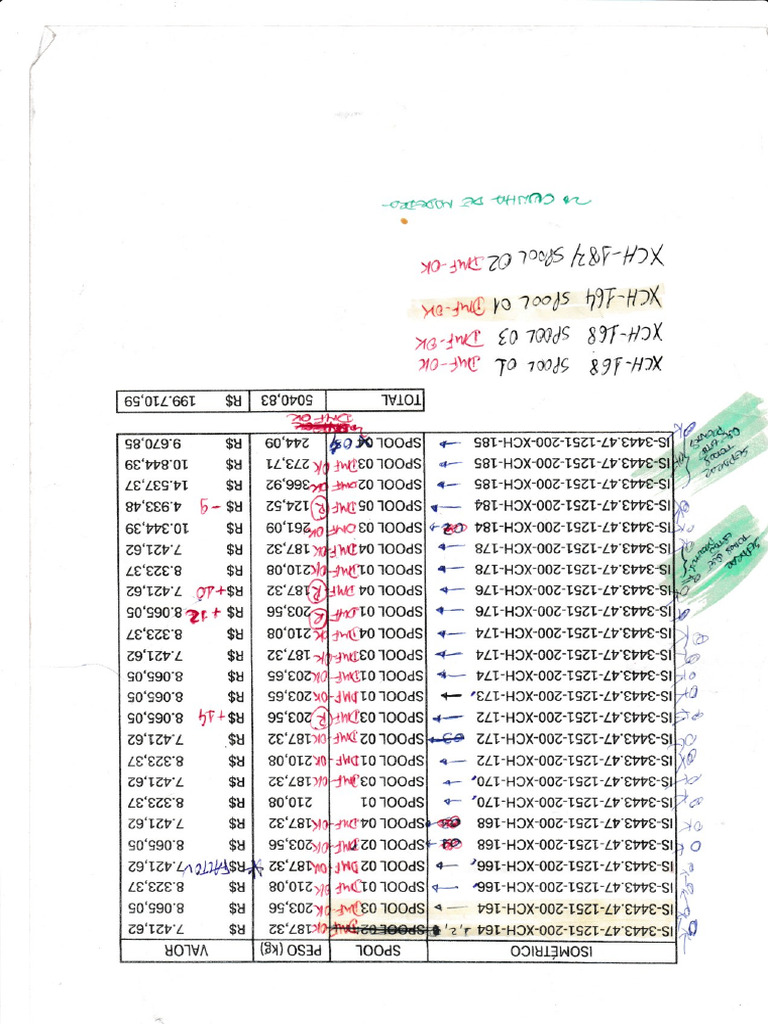 ISOMÉTRICO SPOOL PESO (kg) VALOR
IS-3443.47-1251-200-XCH-164 SPOOL 02 DMF-OK 187,32 R$ 7.421,62
IS-3443.47-1251-200-XCH-164 SPOOL 03 DMF OK 203,56 R$ 8.065,05
IS-3443.47-1251-200-XCH-166, SPOOL 01 DMF OK 210,08 R$ 8.323,37
IS-3443.47-1251-200-XCH-166, SPOOL 02 DMF OK 187,32 R$ 7.421,62 FALTOU
IS-3443.47-1251-200-XCH-168 SPOOL 02 DMF-OK 203,56 R$ 8.065,05
IS-3443.47-1251-200-XCH-168 SPOOL 04 DMF-OK 187,32 R$ 7.421,62
IS-3443.47-1251-200-XCH-170, SPOOL 01 210,08 R$ 8.323,37
IS-3443.47-1251-200-XCH-170, SPOOL 03 DMF OK 187,32 R$ 7.421,62
IS-3443.47-1251-200-XCH-172 SPOOL 01 DMF-OK 210,08 R$ 8.323,37
IS-3443.47-1251-200-XCH-172 03 SPOOL 02 DMF-OK 187,32 R$ 7.421,62
IS-3443.47-1251-200-XCH-172 SPOOL 03 DMF R 203,56 R$ 8.065,05 +14
IS-3443.47-1251-200-XCH-173, SPOOL 01 DMF-OK 203,65 R$ 8.065,05
IS-3443.47-1251-200-XCH-174 SPOOL 01 DMF-OK 203,65 R$ 8.065,05
IS-3443.47-1251-200-XCH-174 SPOOL 03 DMF-OK 187,32 R$ 7.421,62
IS-3443.47-1251-200-XCH-174 SPOOL 04 DMF OK 210,08 R$ 8.323,37
IS-3443.47-1251-200-XCH-176 SPOOL 01 DMF R 203,56 R$ 8.065,05 +12
IS-3443.47-1251-200-XCH-176 SPOOL 04 DMF R 187,32 R$ 7.421,62 +10
IS-3443.47-1251-200-XCH-178 SPOOL 01 DMF OK 210,08 R$ 8.323,37
IS-3443.47-1251-200-XCH-178 SPOOL 04 DMF-OK 187,32 R$ 7.421,62
IS-3443.47-1251-200-XCH-184 02 SPOOL 03 DMF OK 261,09 R$ 10.344,39
IS-3443.47-1251-200-XCH-184 SPOOL 05 DMF R 124,52 R$ 4.933,48 -9
IS-3443.47-1251-200-XCH-185 SPOOL 02 DMF OK 366,92 R$ 14.537,37
IS-3443.47-1251-200-XCH-185 SPOOL 03 DMF OK 273,71 R$ 10.844,39
IS-3443.47-1251-200-XCH-185 SPOOL 04 244,09 R$ 9.670,85
DMF OK
TOTAL 5040,83 R$ 199.710,59
XCH-168 SPOOL 01 DMF-OK
XCH-168 SPOOL 03 DMF-OK
XCH-164 SPOOL 01 DMF-OK
XCH-184 SPOOL 02 DMF-OK
20 CUNHA DE MADEIRA
SEPARAR
SEPARAR